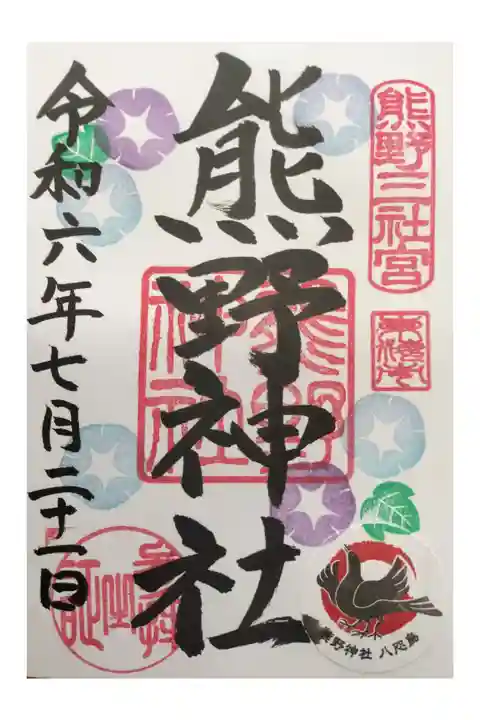 熊野三社宮
熊野神社
熊野神社
令和六年七月二十一日
参拝之証
熊野神社 八咫烏